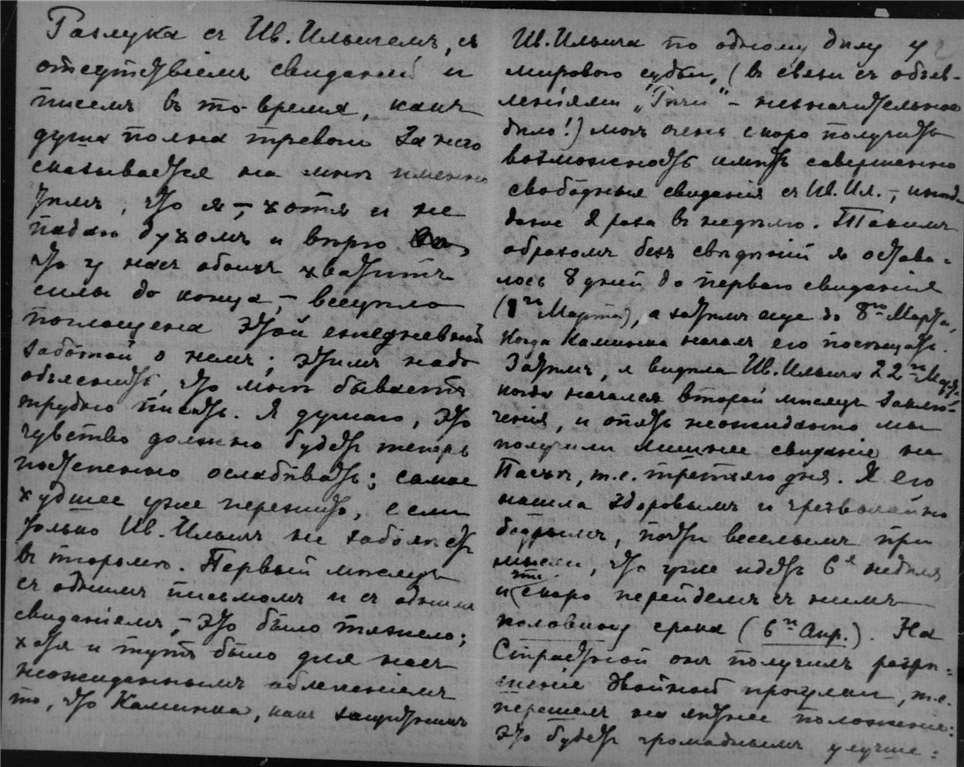 Разлука съ Ив. Ильичемъ, съ
отсутствіемъ свиданій и
писемъ въ то время, какъ
душа полна тревоги за него
сказывается на мнѣ именно
тѣмъ, что я, – хотя и не
падаю духомъ и вѣрю
что у насъ обоихъ хватитъ
силы до конца, – всецѣло
поглощена этой ежедневной
заботой о немъ; этимъ надо
объяснить, что мнѣ бываетъ
трудно писать. Я думаю, это
чувство должно будетъ теперь
постепенно ослабѣвать; самое
худшее уже пережито, если
только Ив. Ильичъ не заболѣетъ
въ тюрьмѣ. Первый мѣсяцъ
съ однимъ письмомъ и съ однимъ
свиданіемъ, – это было тяжело;
хотя и тутъ было для насъ
неожиданнымъ облегченіемъ
то, что Каминка, какъ защитникъ
Ив. Ильича по одному дѣлу у
мирового судьи, (въ связи съ объяв-
леніями „Рѣчи" – незначительное
дѣло!) могъ очень скоро получить
возможность имѣть совершенно
свободныя свиданія съ Ив. Ил., – иногда
даже 2 раза въ недѣлю. Такимъ
образомъ безъ свѣдѣній я остава-
лась 8 дней до перваго свиданія
(1го Марта), а затѣмъ еще до 8го Марта,
когда Каминка началъ его посѣщать.
Затѣмъ, я видѣла Ив. Ильича 22го Марта,
когда начался второй мѣсяцъ заклю-
ченія, и опять неожиданно мы
получили лишнее свиданіе на
Пасхѣ, т.е. третьяго дня. Я его
нашла здоровымъ и чрезвычайно
бодрымъ, почти веселымъ при
мысли, что уже идетъ 6я недѣля
и что скоро перейдемъ съ нимъ
половину срока (6го Апр.). На
Страстной онъ получилъ разрѣ-
шеніе двойной прогулки, т.е.
перешелъ на лѣтнее положеніе:
это будетъ громаднымъ улучше-